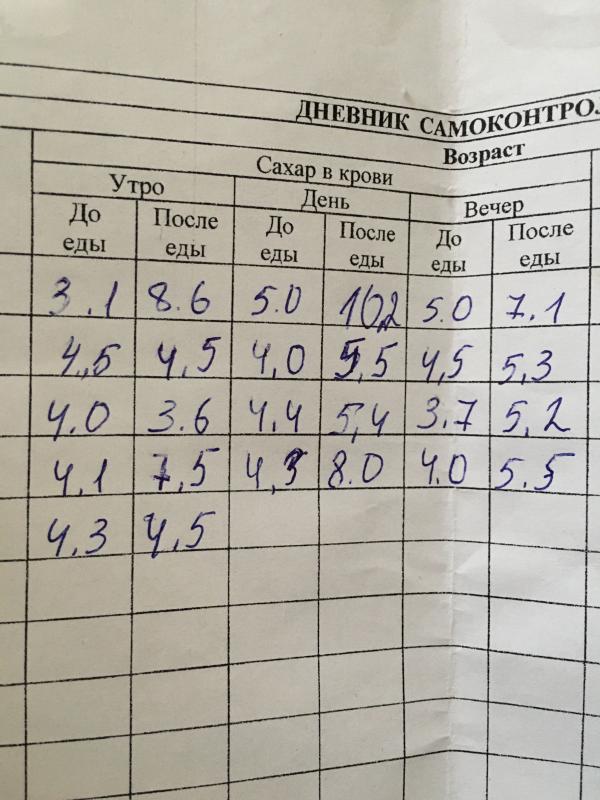 ДНЕВНИК САМОКОНТРОЛ
Возраст
Сахар в крови
Утро День Вечер
До еды После еды До еды После еды До еды После еды
3.1 8.6 5.0 10,2 5.0 7.1
4,5 4,5 4,0 5,5 4,5 5,3
4.0 3.6 4.4 5,4 3.7 5,2
4,1 7,5 4,3 8.0 4.0 5.5
4.3 4,5